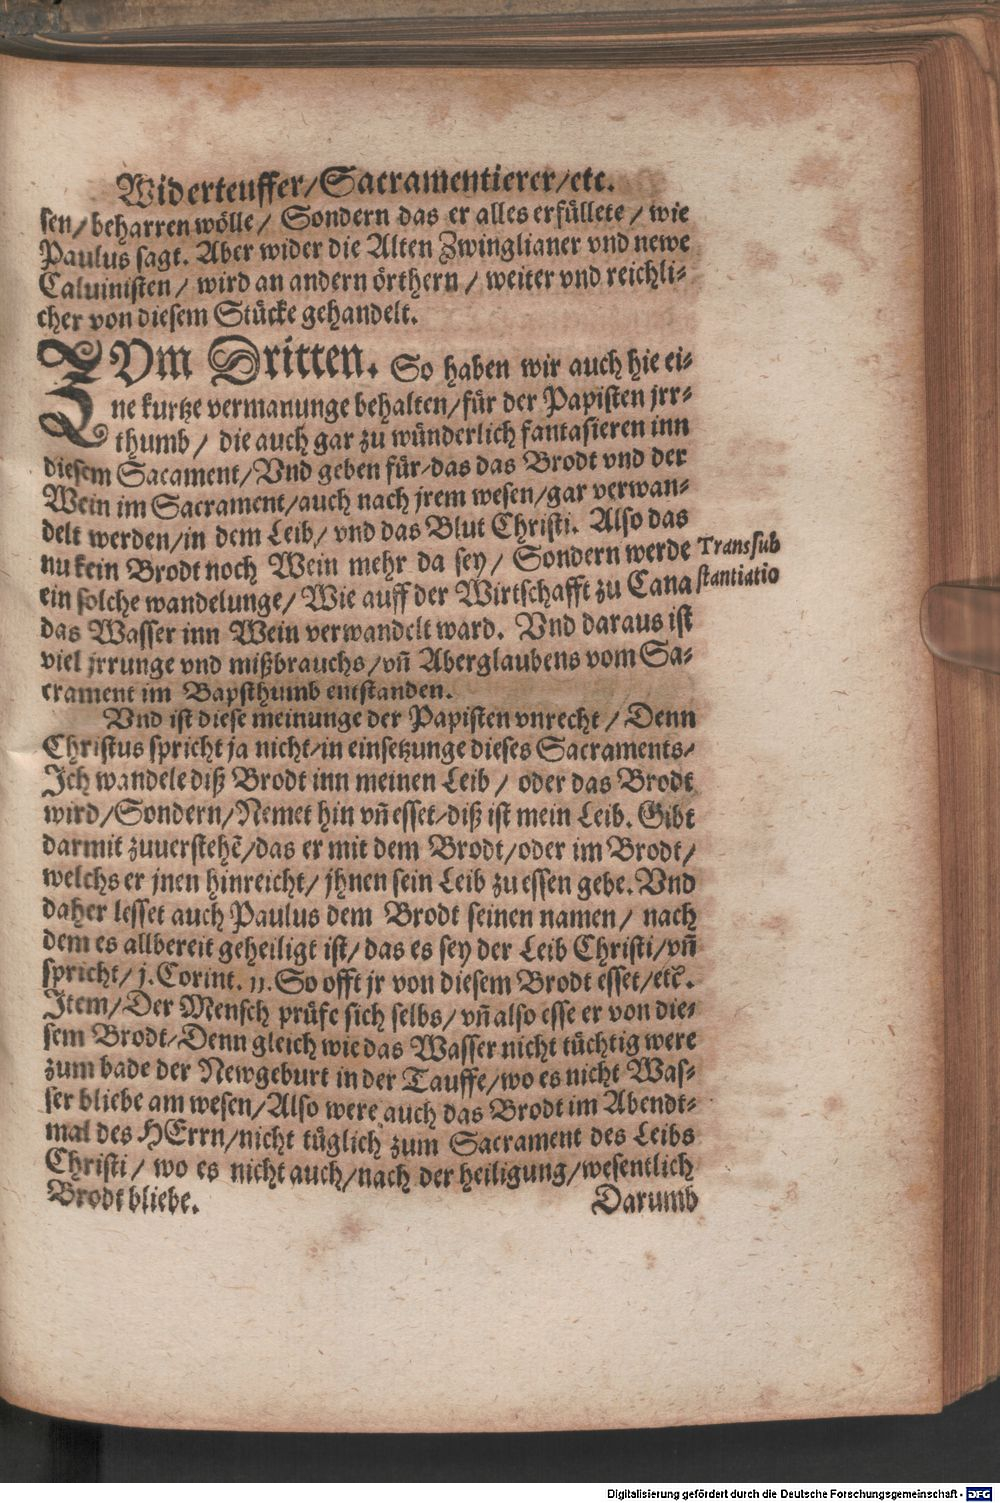 Widerteuffer/Sacramentierer/etc.
sen/beharren wölle/ Sondern das er alles erfüllete/wie
Paulus sagt. Aber wider die Alten Zwinglianer vnd newe
Caluinisten/ wird an andern örthern/ weiter vnd reichli-
cher von diesem Stücke gehandelt.
ZVm Dritten. So haben wir auch hie ei-
ne kurtze vermanunge behalten/für der Papisten jrr-
thumb/ die auch gar zu wünderlich fantasieren inn
diesem Sacament/Vnd geben für/das das Brodt vnd der
Wein im Sacrament/auch nach jrem wesen/gar verwan-
delt werden/in dem Leib/ vnd das Blut Christi. Also das
nu kein Brodt noch Wein mehr da sey/ Sondern werde
ein solche wandelunge/ Wie auff der Wirtschafft zu Cana
Transsub
stantiatio
das Wasser inn Wein verwandelt ward. Vnd daraus ist
viel jrrunge vnd mißbrauchs/vñ Aberglaubens vom Sa-
crament im Bapsthumb entstanden.
Vnd ist diese meinunge der Papisten vnrecht/ Denn
Christus spricht ja nicht/in einsetzunge dieses Sacraments/
Ich wandele diß Brodt inn meinen Leib/ oder das Brodt
wird/Sondern/Nemet hin vñ esset/diß ist mein Leib. Gibt
darmit zuuerstehẽ/das er mit dem Brodt/oder im Brodt/
welchs er jnen hinreicht/ jhnen sein Leib zu essen gebe. Vnd
daher lesset auch Paulus dem Brodt seinen namen/ nach
dem es allbereit geheiligt ist/ das es sey der Leib Christi/vñ
spricht/ j. Corint. 11. So offt jr von diesem Brodt esset/etc̃.
Item/Der Mensch prüfe sich selbs/ vñ also esse er von die-
sem Brodt/Denn gleich wie das Wasser nicht tüchtig were
zum bade der Newgeburt in der Tauffe/wo es nicht Was-
ser bliebe am wesen/Also were auch das Brodt im Abendt-
mal des HErrn/nicht tüglich zum Sacrament des Leibs
Christi/ wo es nicht auch/nach der heiligung/wesentlich
Brodt bliebe.
Darumb
Digitalisierung gefördert durch die Deutsche Forschungsgemeinschaft - DFG